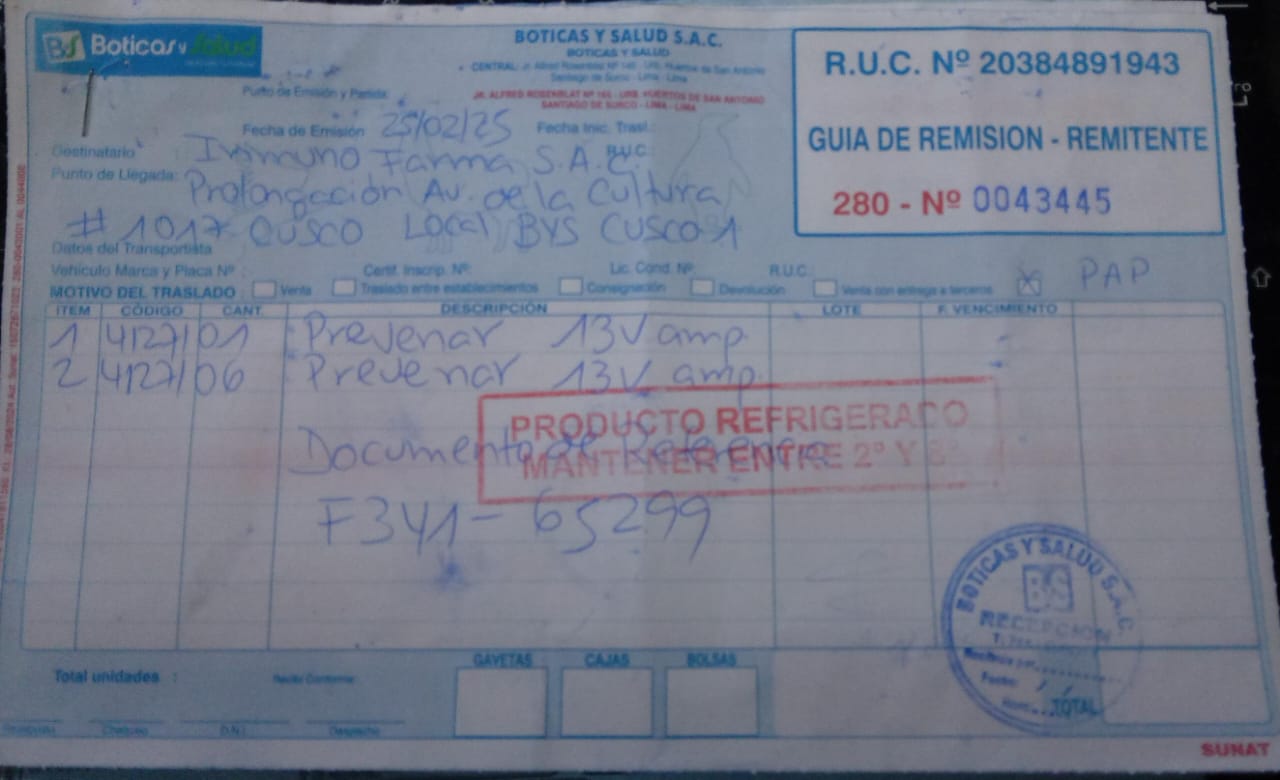 BS Boticas y Salud
BOTICAS Y SALUD S.A.C.
BOTICAS Y SALUD
CENTRAL: Jr. Alfred Rosenblat Nº 165 - Urb. Huertos de San Antonio
Santiago de Surco - Lima - Lima
Punto de Emisión y Partida:
JR. ALFRED ROSENBLAT Nº 165 - URB. HUERTOS DE SAN ANTONIO
SANTIAGO DE SURCO - LIMA - LIMA
R.U.C. Nº 20384891943
GUIA DE REMISION - REMITENTE
280 - Nº 0043445
Fecha de Emisión 25/02/25 Fecha Inic. Trasl.:
Destinatario: Inmuno Farma S.A.C. R.U.C:
Punto de Llegada: Prolongación Av. de la Cultura
# 1017 Cusco Local BYS CUSCO 1
Datos del Transportista
Vehículo Marca y Placa Nº: Certif. Inscrip. Nº: Lic. Cond. Nº R.U.C:
MOTIVO DEL TRASLADO: Venta Traslado entre establecimientos Consignación Devolución Venta con entrega a terceros X PAP
ITEM CÓDIGO CANT. DESCRIPCIÓN LOTE F. VENCIMIENTO
1 41271 01 Prevenar 13V amp.
2 41271 06 Prevenar 13V amp.
PRODUCTO REFRIGERADO
MANTENER ENTRE 2° Y 8°
Documento de Referencia
F341-65299
BOTICAS Y SALUD S.A.C.
BS
RECEPCION
Fecha: / /
Total unidades : Recibí Conforme: GAVETAS CAJAS BOLSAS TOTAL
Chequeo D.N.I. Despacho
SUNAT